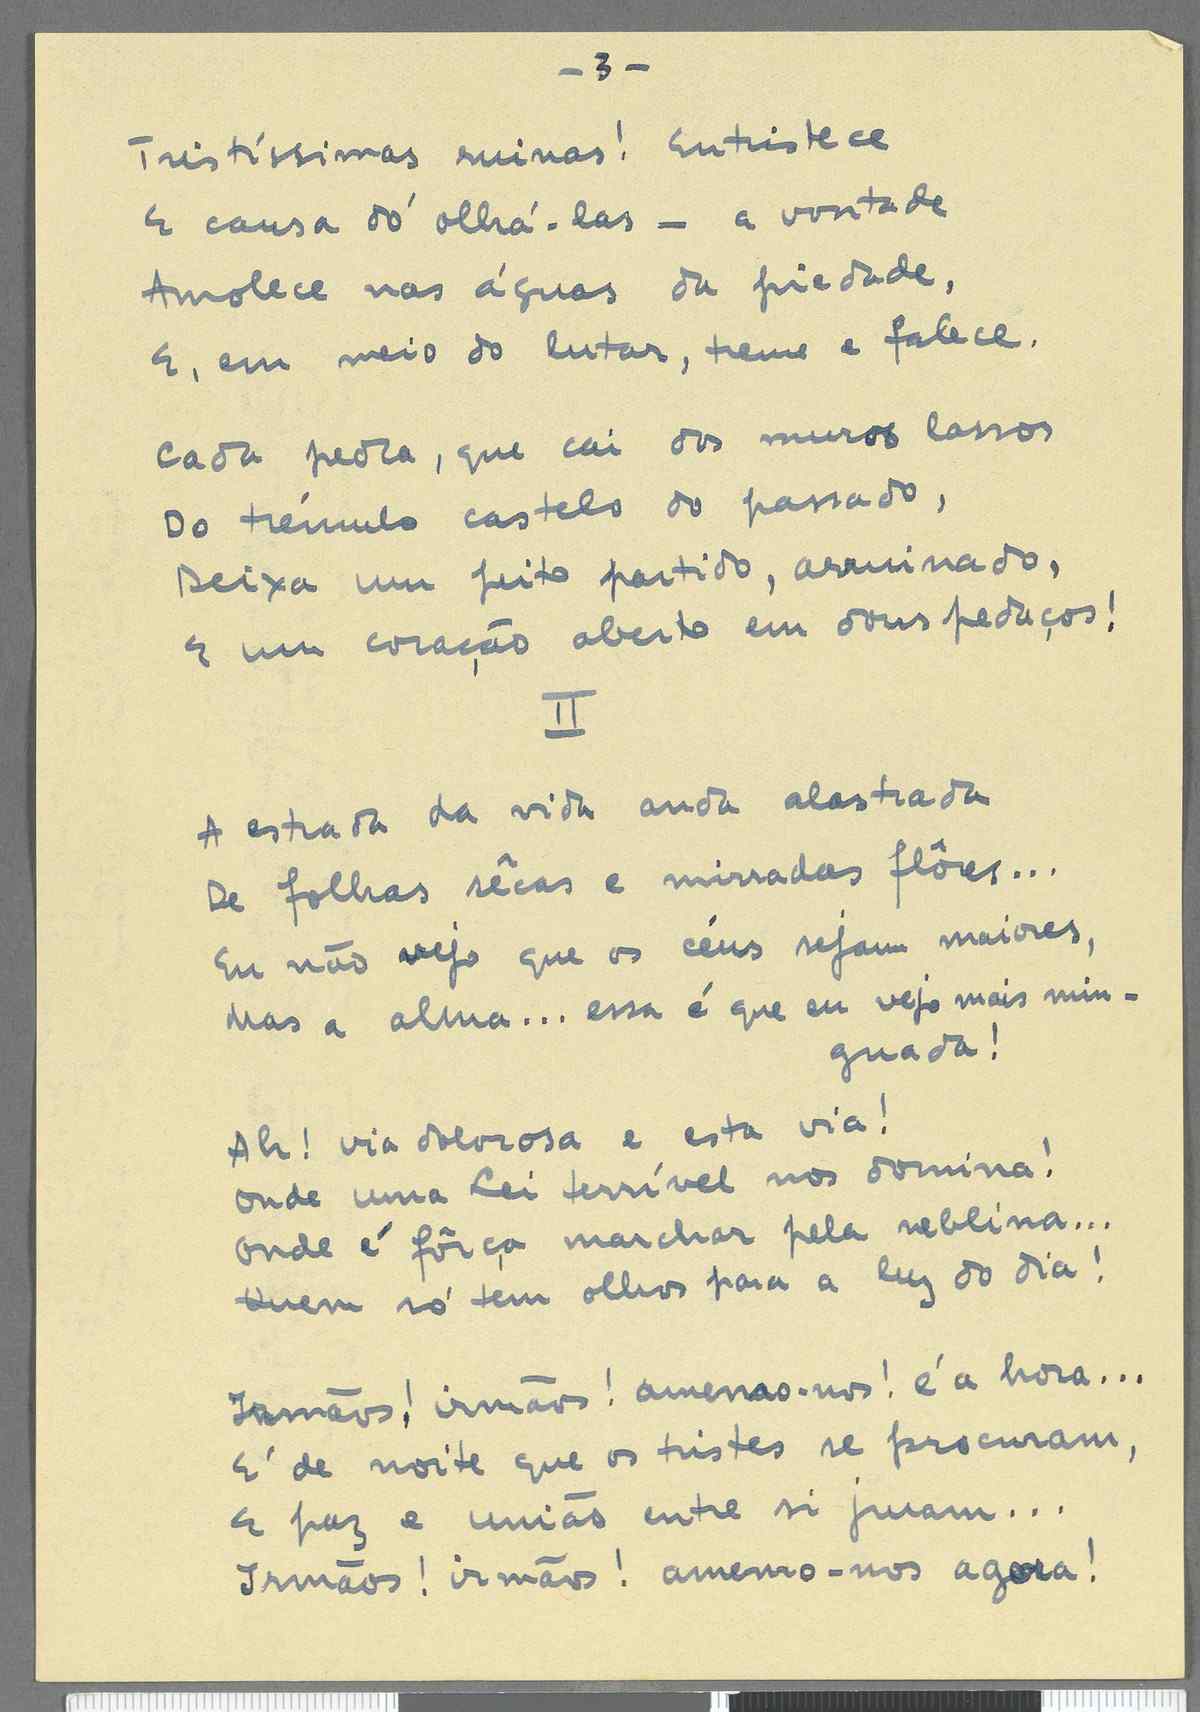 - 3 -
Tristíssimas ruinas! Entristece
E causa dó olhá-las — a vontade
Amolece nas águas da piedade,
E, em meio do lutar, treme e falece.
Cada pedra, que cai dos muros lassos
Do trémulo castelo do passado,
Deixa um peito partido, arruinado,
E um coração aberto em dous pedaços!
II
A estrada da vida anda alastrada
De folhas sêcas e mirradas flôres...
Eu não vejo que os céus sejam maiores,
Mas a alma... essa é que eu vejo mais min-
guada!
Ah! via dolorosa e esta via!
Onde uma Lei terrível nos domina!
Onde é fôrça marchar pela neblina...
Quem só tem olhos para a luz do dia!
Irmãos! irmãos! amemo-nos! é a hora...
É de noite que os tristes se procuram,
E paz e união entre si juram...
Irmãos! irmãos! amemo-nos agora!